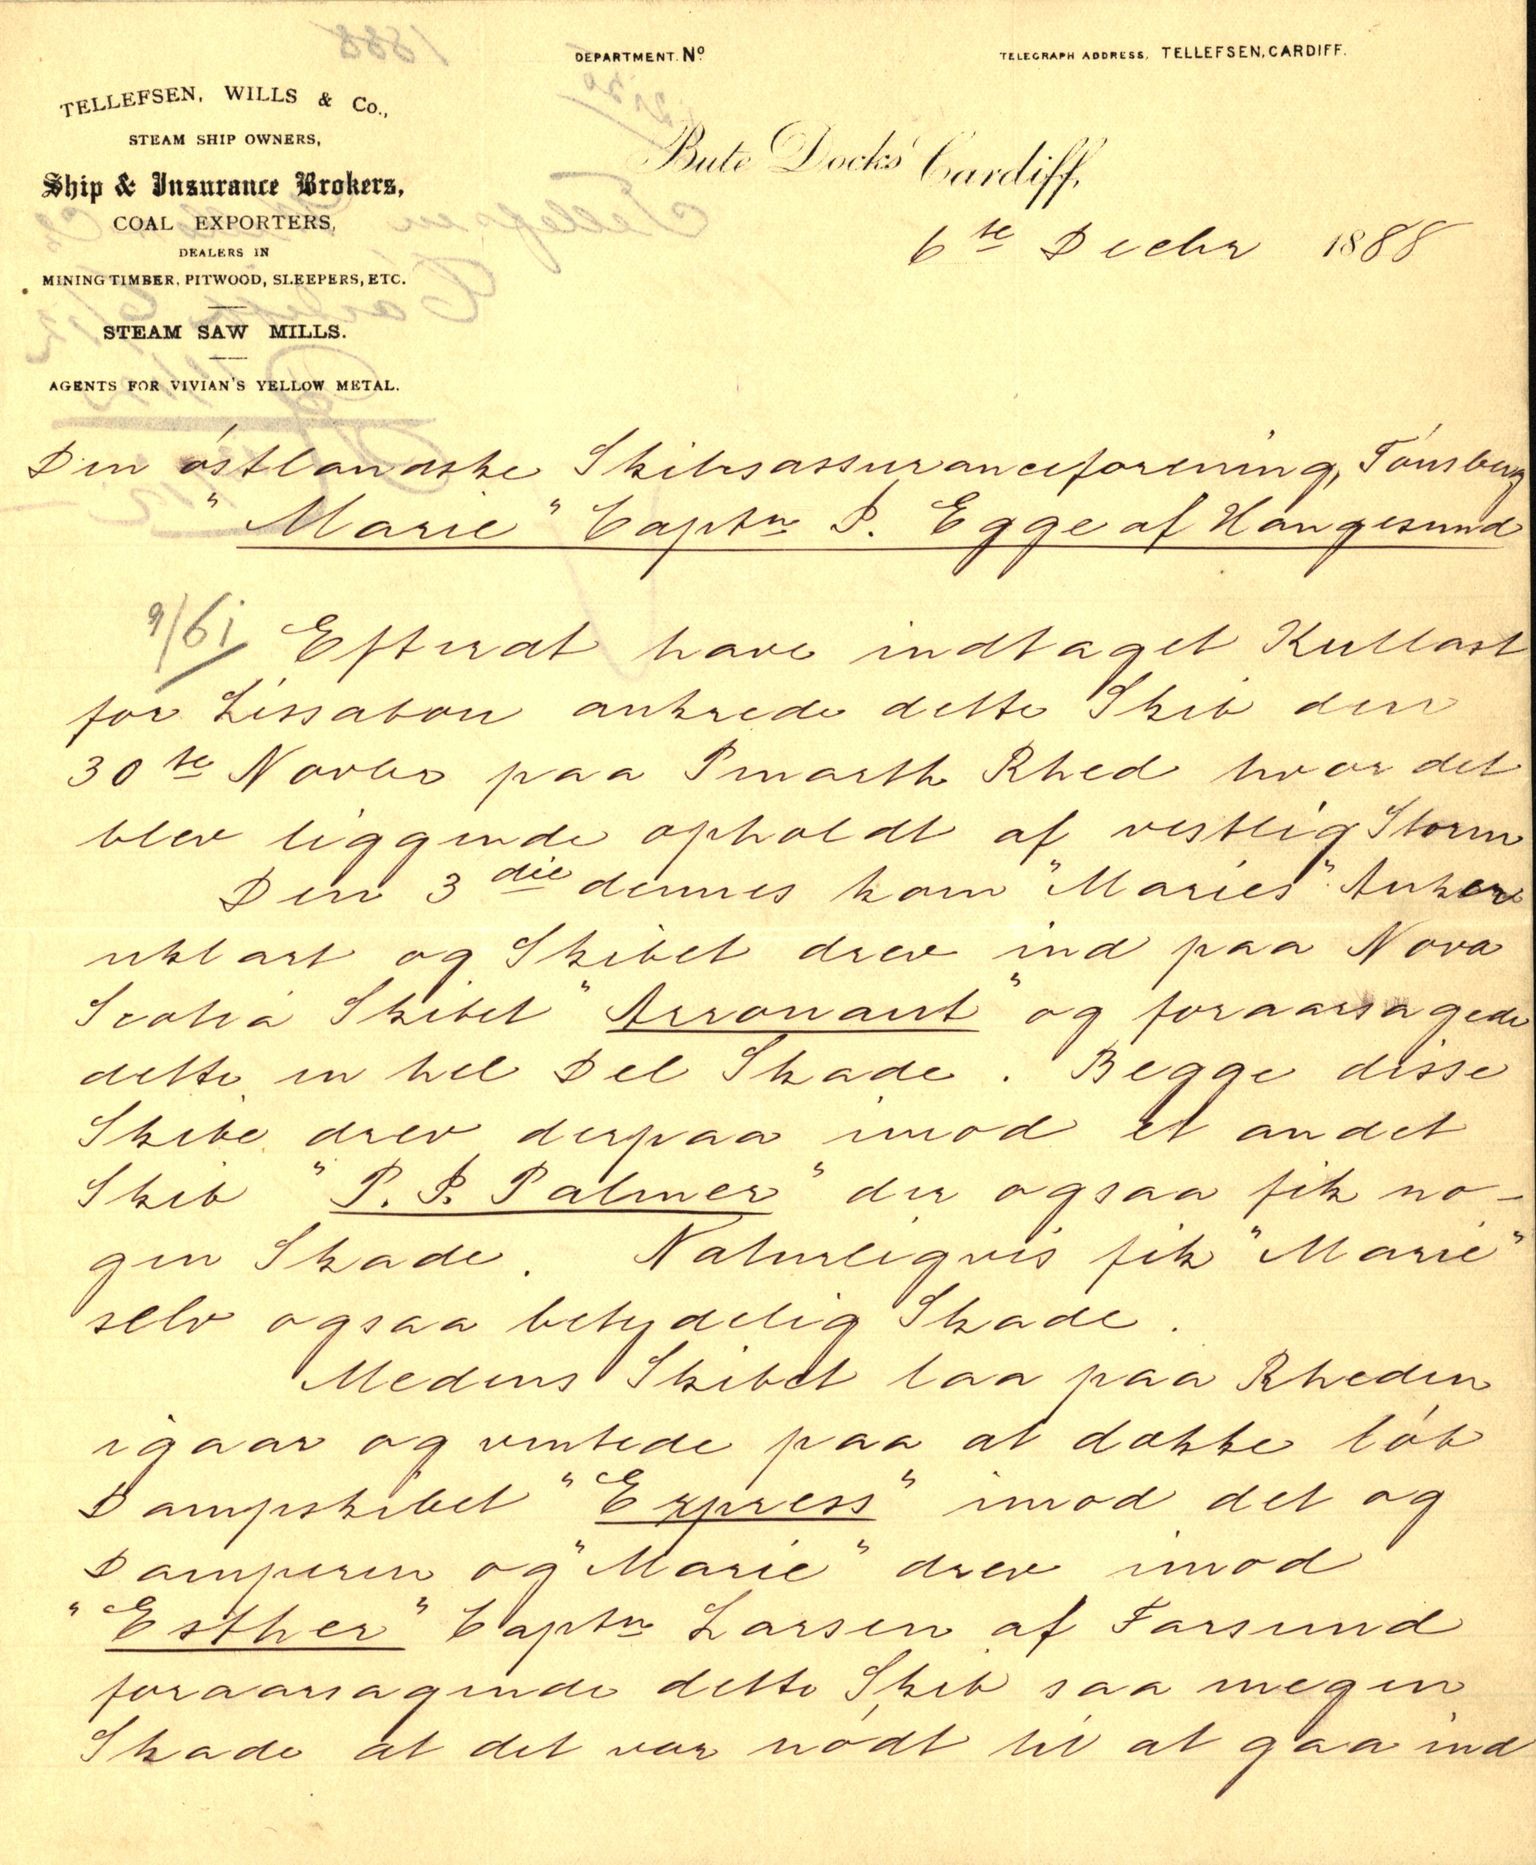 DEPARTMENT. Nº
TELEGRAPH ADDRESS, TELLEFSEN, CARDIFF.
TELLEFSEN, WILLS & Co.,
STEAM SHIP OWNERS,
Ship & Insurance Brokers,
COAL EXPORTERS,
DEALERS IN
MINING TIMBER, PITWOOD, SLEEPERS, ETC.
STEAM SAW MILLS.
AGENTS FOR VIVIAN'S YELLOW METAL.
Bute Docks Cardiff,
6te Decbr 1888
Den østlandske Skibsassuranceforening, Tønsberg
"Marie" Captn P. Egge af Haugesund
9/61
Efterat have indtaget Kullast
for Lissabon ankrede dette Skib den
30te Novbr paa Pnarth Rhed hvor det
blev liggende opholdt af vestlig Storm
Den 3die dennes kom "Maries" Anker
uklart og Skibet drev ind paa Nova
Scotia Skibet "Arronaut" og foraarsagede
dette en hel Del Skade. Begge disse
Skibe drev derpaa imod et andet
Skib "P. P. Palmer" der ogsaa fik no-
gen Skade. Naturligvis fik "Marie"
selv ogsaa betydelig Skade.
Medens Skibet laa paa Rheden
igaar og ventede paa at dokke løb
Dampskibet "Express" imod det og
Damperen og "Marie" drev imod
"Esther" Captn Larsen af Farsund
foraarsagende dette Skib saa megen
Skade at det var nødt til at gaa ind